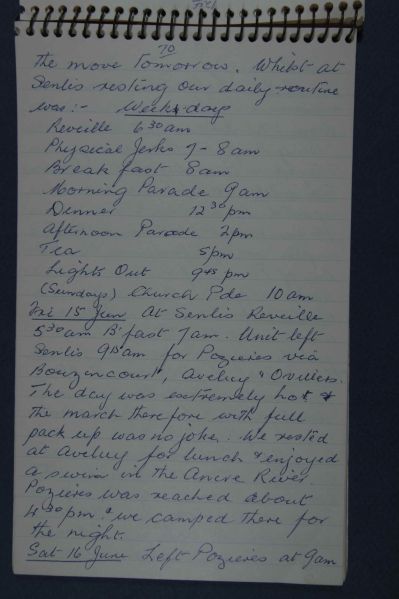 70
the move Tomorrow. Whilst at
Senlis resting our daily routine
was:- Week-day
Reveille 6 30 am
Physical Jerks 7-8 am
Breakfast 8 am
Morning Parade 9 am
Dinner 12 30 pm
Afternoon Parade 2 pm
Tea 5 pm
Lights Out 9 45 pm
(Sundays) Church Pde 10 am
Fri 15 Jun At Senlis Reveille
5 30 am B'fast 7 am. Unit left
Senlis 9 15 am for Pozieres via
Bouzincourt, Aveluy & Ovillers.
The day was extremely hot &
the march therefore with full
pack up was no joke. We rested
at Aveluy for lunch & enjoyed
a swim in the Ancre River.
Pozieres was reached about
4 30 pm & we camped there for
the night.
Sat 16 June Left Pozieres at 9 am